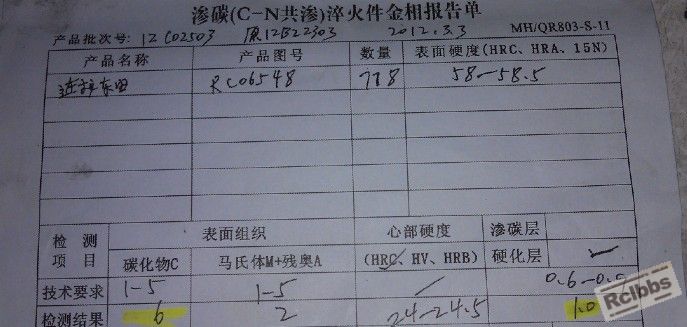 渗碳(C-N共渗)淬火件金相报告单
产品批次号: 12C02503 原12B22303 2012.3.3 MH/QR803-S-11
产品名称 产品图号 数量 表面硬度(HRC、HRA、15N)
RC06548 778 58-58.5
检测项目 表面组织 心部硬度 渗碳层
碳化物C 马氏体M+残奥A (HRC、HV、HRB) 硬化层
技术要求 1-5 1-5 / 0.6-0.
检测结果 6 2 24-24.5 1.0
Rclbbs